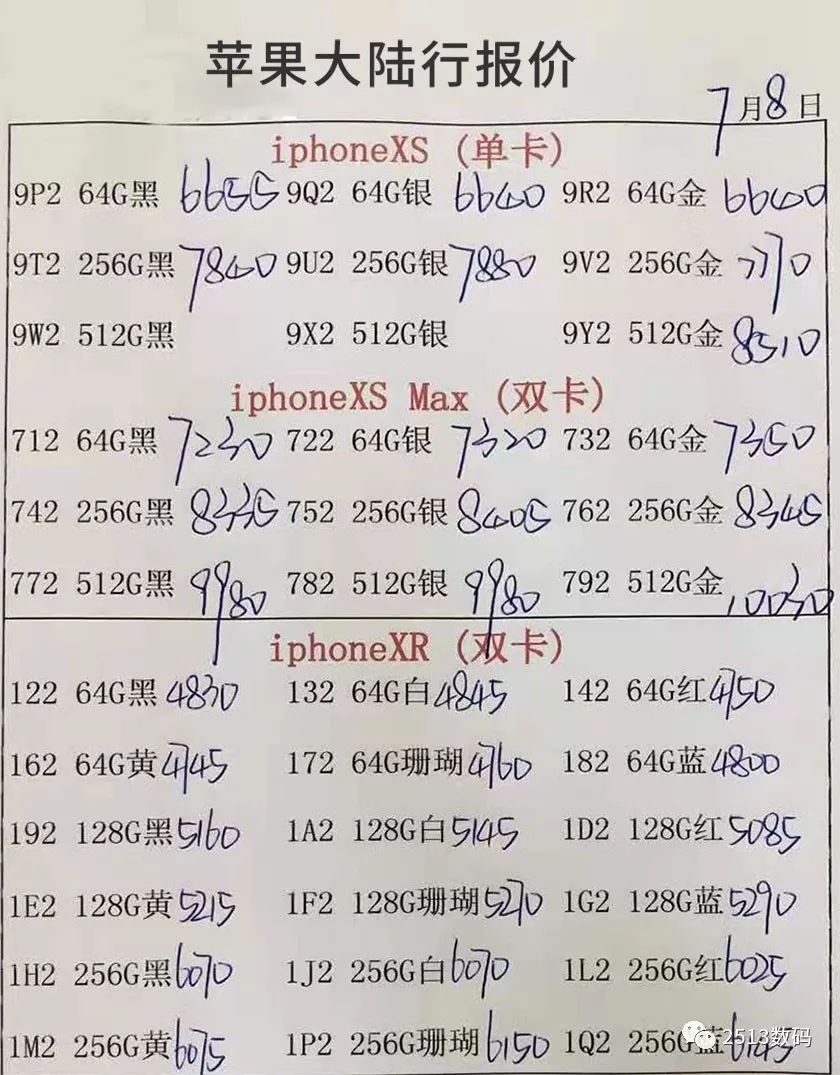 苹果大陆行报价
7月8日
iphoneXS (单卡)
9P2 64G黑 6655 9Q2 64G银 6640 9R2 64G金 6640
9T2 256G黑 7840 9U2 256G银 7880 9V2 256G金 7770
9W2 512G黑 9X2 512G银 9Y2 512G金 8510
iphoneXS Max (双卡)
712 64G黑 7230 722 64G银 7320 732 64G金 7350
742 256G黑 8335 752 256G银 8405 762 256G金 8345
772 512G黑 9980 782 512G银 9980 792 512G金 10030
iphoneXR (双卡)
122 64G黑 4830 132 64G白 4845 142 64G红 4750
162 64G黄 4745 172 64G珊瑚 4760 182 64G蓝 4800
192 128G黑 5160 1A2 128G白 5145 1D2 128G红 5085
1E2 128G黄 5215 1F2 128G珊瑚 5270 1G2 128G蓝 5290
1H2 256G黑 6070 1J2 256G白 6070 1L2 256G红 6025
1M2 256G黄 6075 1P2 256G珊瑚 6150 1Q2 256G蓝 6145
2513数码